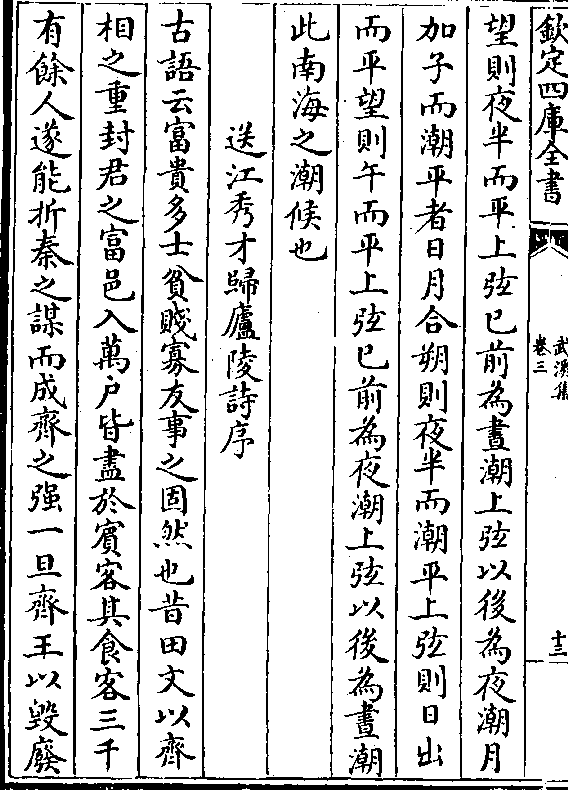 欽定四庫全書
武溪集
卷三
十三
望則夜半而平上弦已前為晝潮上弦以後為夜潮月
加子而潮平者日月合朔則夜半而潮平上弦則日出
而平望則午而平上弦已前為夜潮上弦以後為晝潮
此南海之潮候也
送江秀才歸廬陵詩序
古語云富貴多士貧賤寡友事之固然也昔田文以齊
相之重封君之富邑入萬户皆盡於賓客其食客三千
有餘人遂能折秦之謀而成齊之强一旦齊王以毀廢